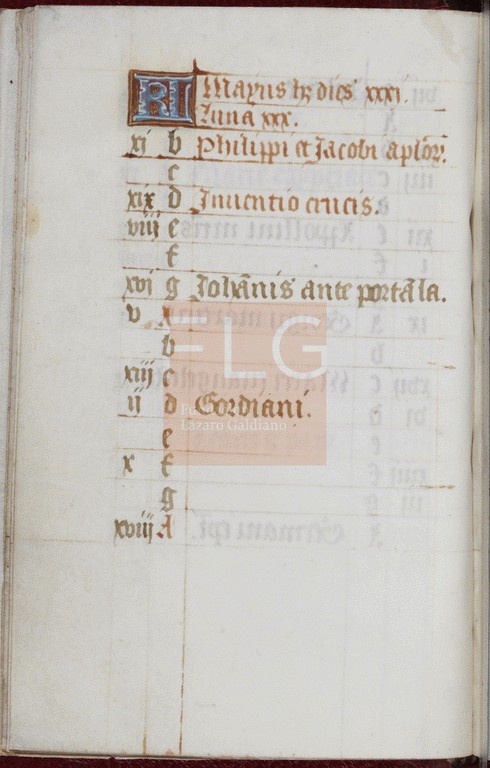 KL Mayus hꝫ dies xxxi.
Luna xxx.
xj b Philippi et Jacobi aplorꝝ.
c
xix d Inuentio crucis.
viij e
f
xvj g Johānis ante portā la.
v A
b
xiij c
ij d Gordiani.
e
x f
g
xviij A
FLG
Lázaro Galdiano